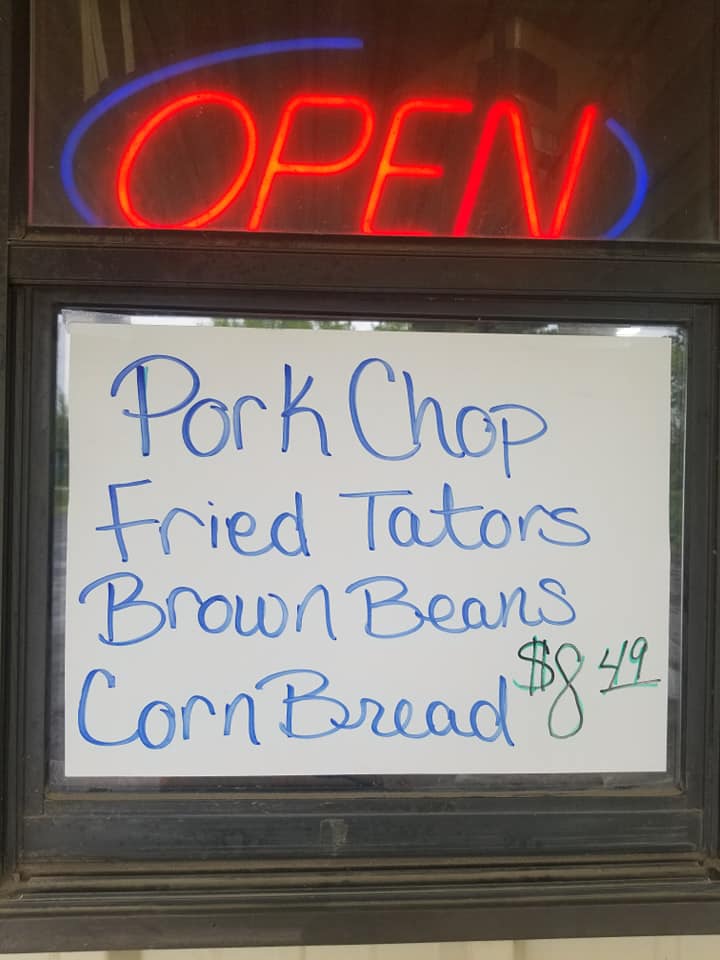 OPEN
Pork Chop
Fried Tators
Brown Beans
Corn Bread $8.49